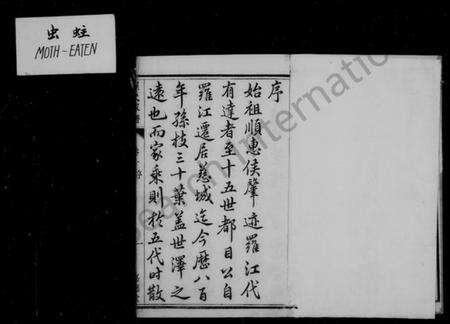 虫蛀
MOTH-EATEN
序
始祖順惠侯肇迹羅江代
有達者至十五世都目公自
羅江遷居慈城迄今歷八百
年孫枝三十葉蓋世澤之
遠也而家乘則於五代時散